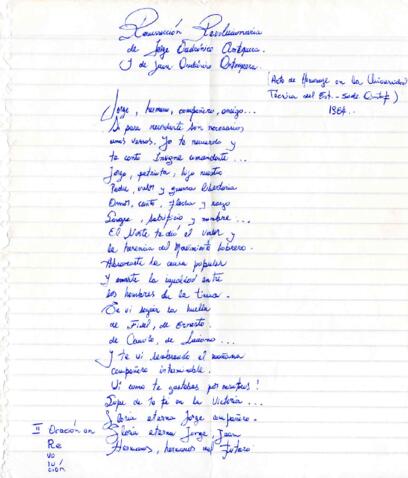 Resurrección Revolucionaria
de Jorge Ordenico Antequera.
Y de Juan Ordenico Antequera.
(Acto de Homenaje en la Universidad
Técnica del Est. - Sede Quito)
1984.
Jorge, hermano, compañero, amigo...
Si para recordarte son necesarios
unos versos. Yo te recuerdo y
te canto Insigne comandante...
Jorge, patriota, hijo nuestro
Padre, valor y guerra libertaria
Amor, canto, flecha y
Sangre, sacrificio y nombre...
El Norte te dió el valor y
la herencia del Movimiento Obrero.
Abrazaste la causa popular
Y amaste la igualdad entre
los hombres de la tierra.
Te vi seguir la huella
de Fidel, de Ernesto.
de Camilo, de Luciano...
Y te vi sembrando el mañana
compañero interminable.
Vi como te gastabas por nosotros!
Supe de tu fe en la Victoria...
Gloria eterna Jorge compañero.
Gloria eterna Jorge, Juan
Hermanos, hermanos del Futuro
II Oración en
Re
vo
lu
ción